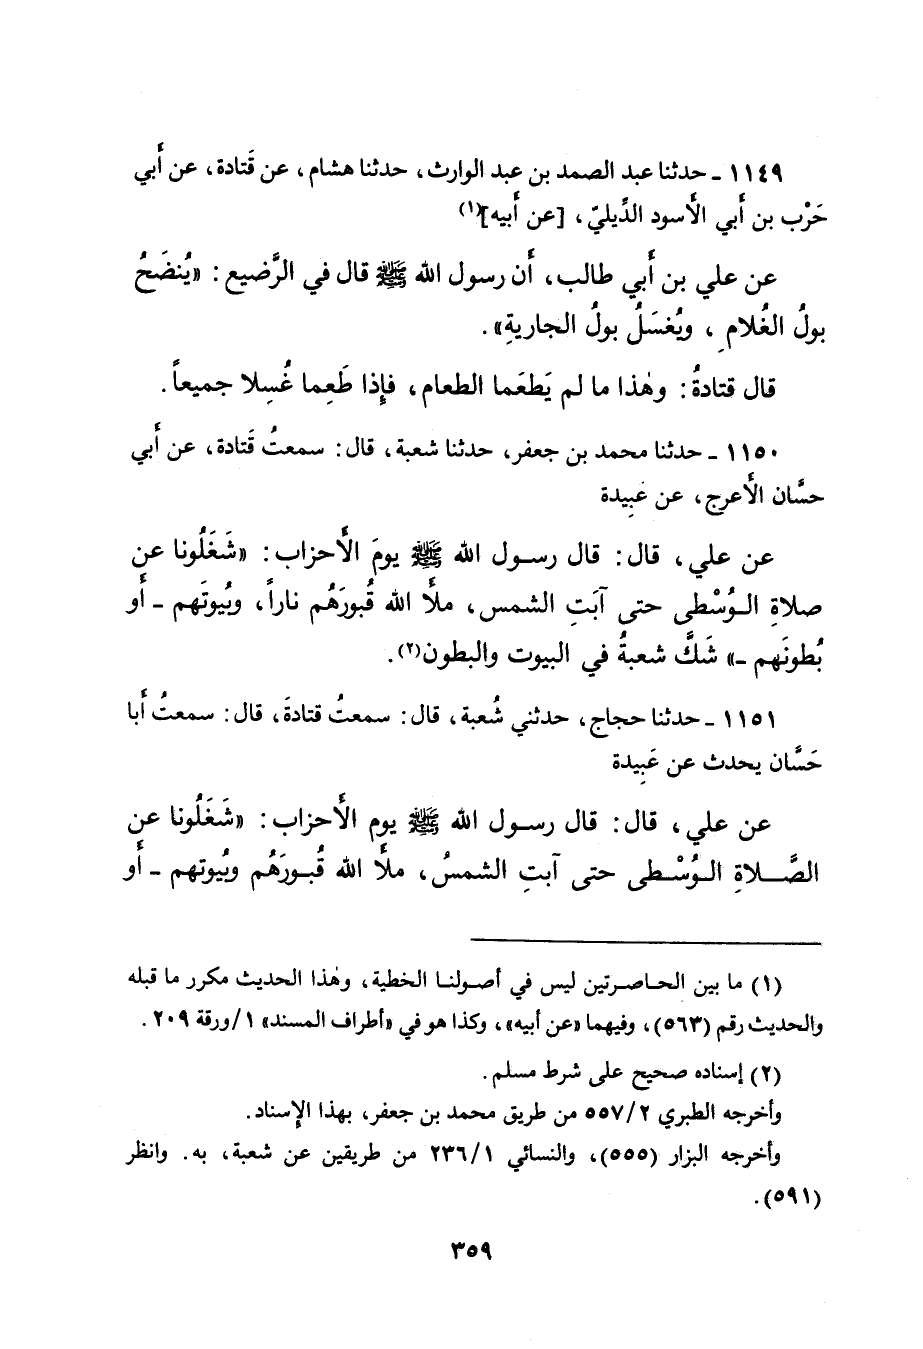 ١١٤٩ - حدثنا عبد الصمد بن عبد الوارث، حدثنا هشام، عن قَتادة، عن أَبي
حَرْب بن أَبي الأَسود الدِّيليّ، [عن أَبيه](١)
عن علي بن أَبي طالب، أَن رسول الله ﷺ قال في الرَّضيع: «يُنضَحُ
بولُ الغُلامِ، ويُغسَلُ بولُ الجاريةِ».
قال قتادةُ: وهٰذا ما لم يَطعَما الطعام، فإِذا طَعِما غُسِلا جميعاً.
١١٥٠ - حدثنا محمد بن جعفر، حدثنا شعبة، قال: سمعتُ قَتادة، عن أَبي
حسَّان الأَعرج، عن عَبِيدة
عن علي، قال: قال رسول الله ﷺ يومَ الأَحزاب: «شَغَلُونا عن
صلاةِ الوُسْطى حتى آبَتِ الشمس، ملأَ الله قُبورَهُم ناراً، وبُيوتَهم - أَو
بُطونَهم -» شَكَّ شعبةُ في البيوت والبطون(٢).
١١٥١ - حدثنا حجاج، حدثني شُعبة، قال: سمعتُ قتادةَ، قال: سمعتُ أَبا
حَسَّان يحدث عن عَبِيدة
عن علي، قال: قال رسول الله ﷺ يوم الأَحزاب: «شَغَلُونا عن
الصَّلاةِ الوُسْطى حتى آبتِ الشمسُ، ملأَ الله قُبورَهُم وبُيوتهم - أَو
(١) ما بين الحاصرتين ليس في أصولنا الخطية، وهٰذا الحديث مكرر ما قبله
والحديث رقم (٥٦٣)، وفيهما «عن أبيه»، وكذا هو في «أطراف المسند» ١/ورقة ٢٠٩.
(٢) إسناده صحيح على شرط مسلم.
وأخرجه الطبري ٥٥٧/٢ من طريق محمد بن جعفر، بهذا الإسناد.
وأخرجه البزار (٥٥٥)، والنسائي ٢٣٦/١ من طريقين عن شعبة، به. وانظر
(٥٩١).
٣٥٩